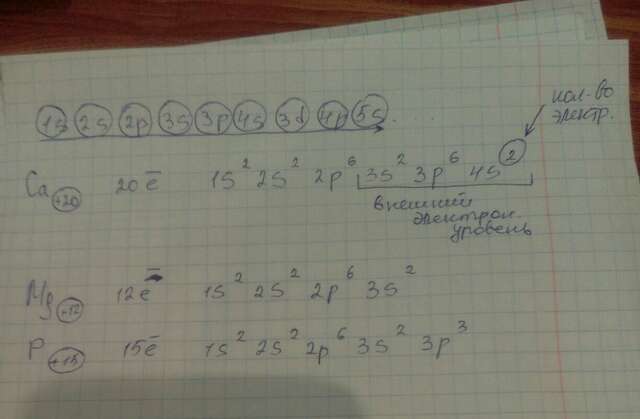 1s 2s 2p 3s 3p 4s 3d 4p 5s.
кол-во
электр.
Ca +20 20ē 1s² 2s² 2p⁶ 3s² 3p⁶ 4s²
внешний
электрон.
уровень
Mg +12 12ē 1s² 2s² 2p⁶ 3s²
P +15 15ē 1s² 2s² 2p⁶ 3s² 3p³